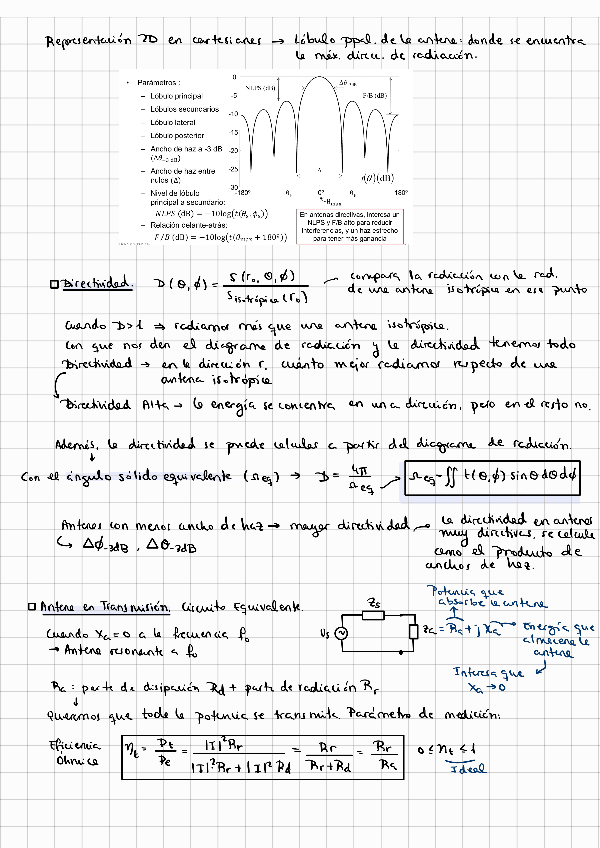 Representación 2D en cartesianas → Lóbulo ppal. de la antena: donde se encuentra
la máx. direcc. de radiación.
• Parámetros :
– Lóbulo principal
– Lóbulos secundarios
– Lóbulo lateral
– Lóbulo posterior
– Ancho de haz a -3 dB
(Δθ-3 dB)
– Ancho de haz entre
nulos (Δ)
– Nivel de lóbulo
principal a secundario:
NLPS (dB) = −10log(t(θs,ϕs))
– Relación delante-atrás:
F/B (dB) = −10log(t(θmax + 180º))
0
-5
-10
-15
-20
-25
-30
NLPS (dB)
Δθ-3 dB
F/B (dB)
Δ
t(θ)(dB)
-180º
θs
0º
θs
180º
θmax
En antenas directivas, interesa un
NLPS y F/B alto para reducir
interferencias, y un haz estrecho
para tener más ganancia
□ Directividad. D(θ,ϕ) = S(r₀, θ, ϕ) / Sisotrópica(r₀) — compara la radiación con la rad.
de una antena isotrópica en ese punto
Cuando D>1 ⇒ radiamos más que una antena isotrópica.
Con que nos den el diagrama de radiación y la directividad tenemos todo
Directividad → en la dirección r, cuánto mejor radiamos respecto de una
antena isotrópica
Directividad Alta → la energía se concentra en una dirección, pero en el resto no.
Además, la directividad se puede calcular a partir del diagrama de radiación.
Con el ángulo sólido equivalente (Ωeq) → D = 4π / Ωeq → Ωeq = ∬ t(θ,ϕ) sinθ dθ dϕ
Antenas con menos ancho de haz → mayor directividad → la directividad en antenas
muy directivas, se calcula
como el producto de
anchos de haz.
↳ Δϕ-3dB , Δθ-3dB
□ Antena en Transmisión. Circuito Equivalente.
Cuando Xa = 0 a la frecuencia f₀
→ Antena resonante a f₀
Potencia que
absorbe la antena
Zs
Vs
Za = Ra + j Xa → Energía que
almacena la
antena
Interesa que
Xa → 0
Ra : parte de disipación Rd + parte de radiación Rr
Queremos que toda la potencia se transmita. Parámetro de medición:
Eficiencia
Óhmica
ηt = Pt / Pe = |I|²Rr / |I|²Rr + |I|²Rd = Rr / Rr + Rd = Rr / Ra
0 ≤ ηt ≤ 1
Ideal